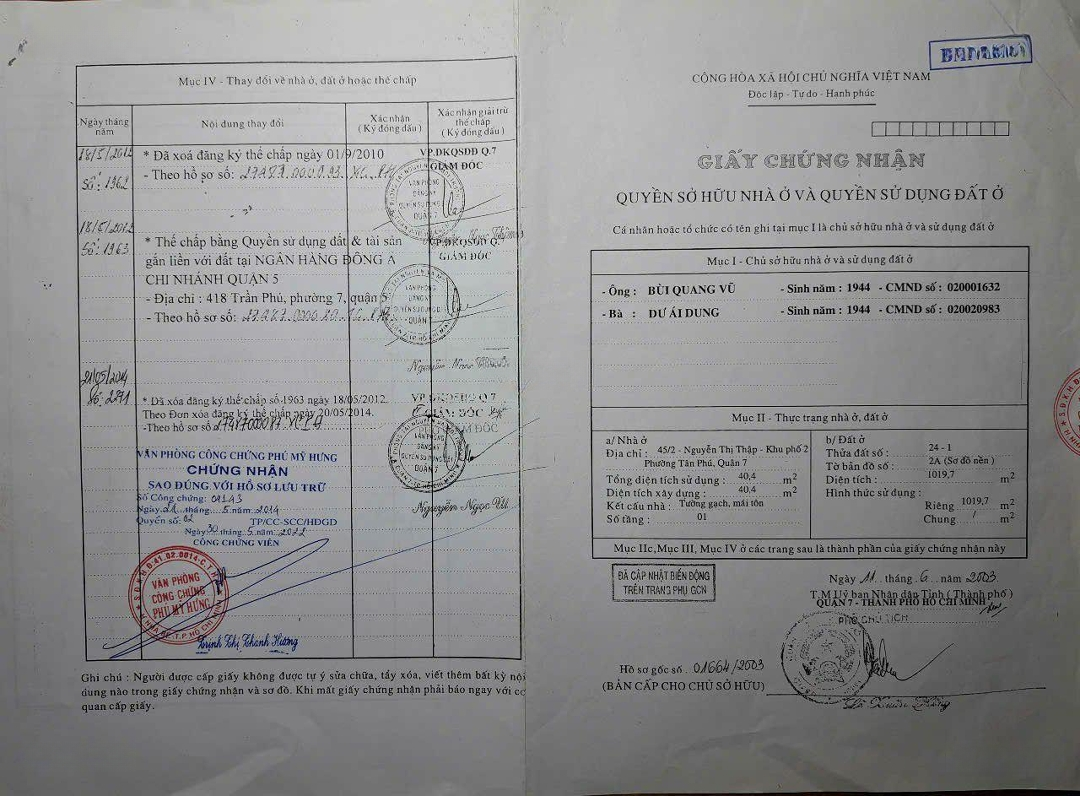 Mục IV - Thay đổi về nhà ở, đất ở hoặc thế chấp
Ngày tháng năm
Nội dung thay đổi
Xác nhận
( Ký đóng dấu )
Xác nhận giải trừ thế chấp
( Ký đóng dấu )
18/5/2012
Số: 1962
* Đã xoá đăng ký thế chấp ngày 01/9/2010
- Theo hồ sơ số:
VP.ĐKQSDĐ Q.7
GIÁM ĐỐC
18/5/2012
Số: 1963
* Thế chấp bằng Quyền sử dụng đất & tài sản
gắn liền với đất tại NGÂN HÀNG ĐÔNG A
CHI NHÁNH QUẬN 5
- Địa chỉ : 418 Trần Phú, phường 7, quận 5
- Theo hồ sơ số:
VP.ĐKQSDĐ Q.7
GIÁM ĐỐC
21/05/2014
Số: 2271
* Đã xóa đăng ký thế chấp số 1963 ngày 18/05/2012.
Theo Đơn xóa đăng ký thế chấp ngày 20/05/2014.
-Theo hồ sơ số
VP ĐKQSDĐ Q.7
GIÁM ĐỐC
VĂN PHÒNG CÔNG CHỨNG PHÚ MỸ HƯNG
CHỨNG NHẬN
SAO ĐÚNG VỚI HỒ SƠ LƯU TRỮ
Số Công chứng:
Ngày 21 tháng 5 năm 2014
Quyển số: 02 TP/CC-SCC/HĐGD
Ngày 30 tháng 5 năm 2022
CÔNG CHỨNG VIÊN
VĂN PHÒNG
CÔNG CHỨNG
PHÚ MỸ HƯNG
Trịnh Thị Thanh Hương
Ghi chú : Người được cấp giấy không được tự ý sửa chữa, tẩy xóa, viết thêm bất kỳ nội
dung nào trong giấy chứng nhận và sơ đồ. Khi mất giấy chứng nhận phải báo ngay với cơ
quan cấp giấy.
CỘNG HÒA XÃ HỘI CHỦ NGHĨA VIỆT NAM
Độc lập - Tự do - Hạnh phúc
GIẤY CHỨNG NHẬN
QUYỀN SỞ HỮU NHÀ Ở VÀ QUYỀN SỬ DỤNG ĐẤT Ở
Cá nhân hoặc tổ chức có tên ghi tại mục I là chủ sở hữu nhà ở và sử dụng đất ở
Mục I - Chủ sở hữu nhà ở và sử dụng đất ở
- Ông : BÙI QUANG VŨ - Sinh năm : 1944 - CMND số : 020001632
- Bà : DƯ ÁI DUNG - Sinh năm : 1944 - CMND số : 020020983
Mục II - Thực trạng nhà ở, đất ở
a/ Nhà ở
Địa chỉ : 45/2 - Nguyễn Thị Thập - Khu phố 2
Phường Tân Phú, Quận 7
Tổng diện tích sử dụng : 40,4 m2
Diện tích xây dựng : 40,4 m2
Kết cấu nhà : Tường gạch, mái tôn
Số tầng : 01
b/ Đất ở
Thửa đất số : 24 - 1
Tờ bản đồ số : 2A (Sơ đồ nền )
Diện tích : 1019,7 m2
Hình thức sử dụng :
Riêng 1019,7 m2
Chung / m2
Mục IIc,Mục III, Mục IV ở các trang sau là thành phần của giấy chứng nhận này
ĐÃ CẬP NHẬT BIẾN ĐỘNG
TRÊN TRANG PHỤ GCN
Ngày 11 tháng 6 năm 2003
T.M Uỷ ban Nhân dân Tỉnh ( Thành phố )
QUẬN 7 - THÀNH PHỐ HỒ CHÍ MINH
PHÓ CHỦ TỊCH
Hồ sơ gốc số 01664/2003
(BẢN CẤP CHO CHỦ SỞ HỮU)